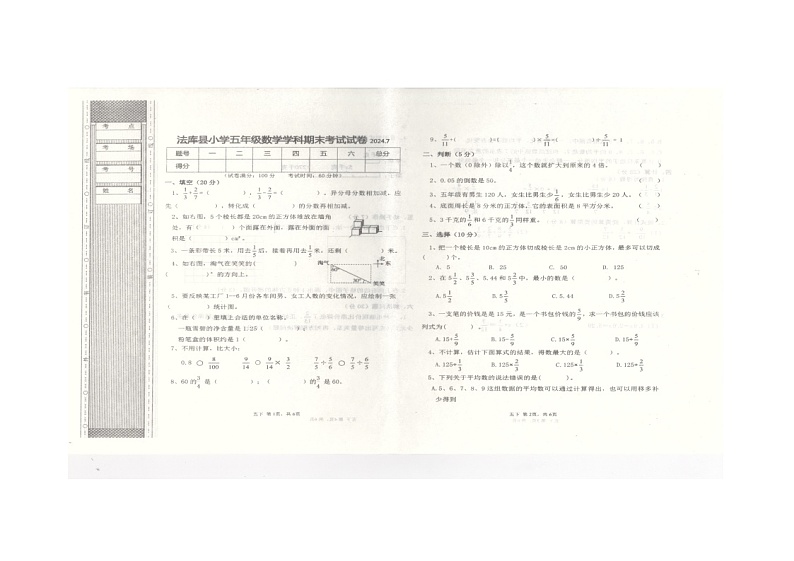 考 点
考 场
考 号
姓 名
法库县小学五年级数学学科期末考试试卷 2024.7
题号 一 二 三 四 五 六 总分
得分
(试卷满分：100分 考试时间：60分钟)
一、填空（20分）
1、1/3+2/7=（ ），1/3-2/7=（ ）。异分母分数相加减，应
先（ ），转化成（ ）的分数再相加减。
2、如右图，5个棱长都是20cm的正方体堆放在墙角
处，有（ ）个面露在外面，露在外面的面
积是（ ）cm²。
3、一条彩带长5米，用去1/5后，接着再用去1/5米，还剩（ ）米。
4、如右图，淘气在笑笑的（ ）
（ ）°的方向上。
淘气
北
东
笑笑
5、要反映某工厂1—6月份各车间男、女工人数的变化情况，应绘制一张
（ ）统计图。
6、在（ ）里填上合适的单位名称。
一瓶需要的净含量是1/25（ ）；
粉笔盒的体积约是1（ ）
7、不用计算，比大小：
0.8 ○ 8/100 9/14 ○ 9/14×3/2 7/5÷5/6 ○ 7/5÷6/5
8、60的3/4是（ ）；（ ）的3/4是60。
五下 第1页，共6页
二、判断（5分）
1、一个数（0除外）除以1/4，这个数就扩大到原来的4倍。（ ）
2、0.05的倒数是50。（ ）
3、五年级有男生120人，女生比男生少1/6，女生比男生少20人。（ ）
4、底面周长是8分米的正方体，它的表面积是8平方米。（ ）
5、3千克的1/6和6千克的1/3同样重。（ ）
三、选择（10分）
1、把一个棱长是10cm的正方体切成棱长是2cm的小正方体，最多可以切成
（ ）个。
A. 5 B. 25 C. 50 D. 125
2、在5 1/2、5 3/5、5.44和5 2/3中，最小的数是（ ）。
A.5 1/2 B.5 3/5 C.5.44 D.5 2/3
3、一支笔的价钱是是15元，是一个书包价钱的5/9，求一个书包的价钱应该
列式为（ ）。
A.15+5/9 B.15-5/9 C.15×5/9 D.15÷5/9
4、不计算，估计下面算式的结果，得数最大的是（ ）。
5、下列关于平均数的说法错误的是（ ）。
A.5、6、7、8、9这组数据的平均数可以通过计算得出，也可以用移多补
少得到
五下 第2页，共6页